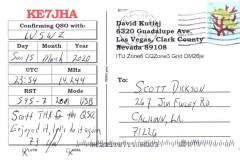 KE7JHA
Confirming QSO with
W5WZ
Day Month Year
Sun 15 March 2020
UTC MHz
23:54 14.244
RST Mode
595-7 USB
Scott TNX for the QSO
Enjoyed it, let's do it again
73
David Kutiej
6320 Guadalupe Ave.
Las Vegas, Clark County
Nevada 89108
ITU Zone6 CQZone3 Grid DM26je
Scott Dickson
267 Jim Finley Rd
Calhoun, LA
71225